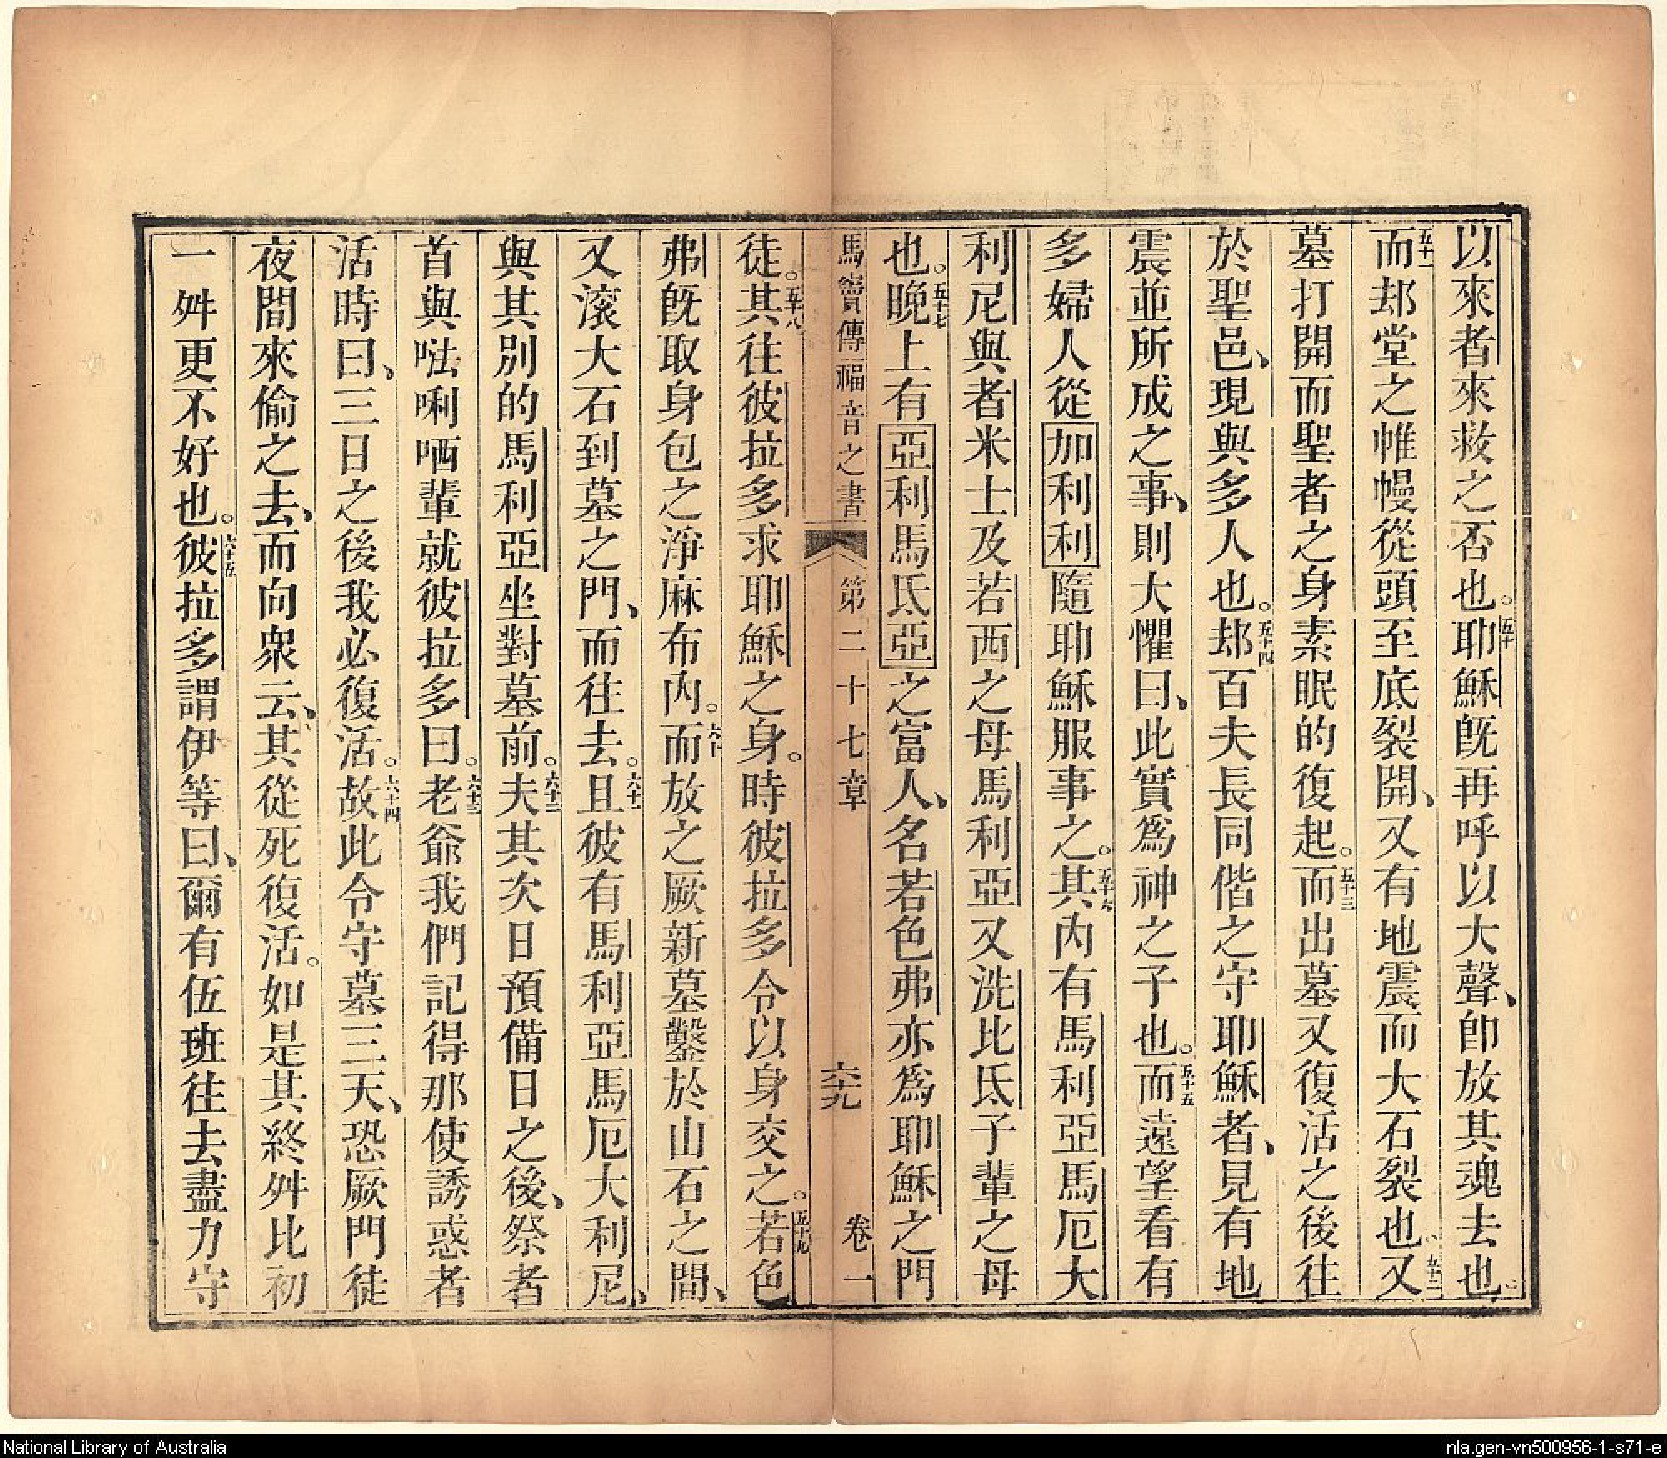 以來者來救之否也。五十耶穌旣再呼以大聲、卽放其魂去也
五十一而㓚堂之帷幔從頭至底裂開、又有地震而大石裂也。五十二又
墓打開而聖者之身素眠的復起。五十三而出墓又復活之後往
於聖邑、現與多人也。五十四㓚百夫長同偕之守耶穌者、見有地
震並所成之事、則大懼曰、此實爲神之子也。五十五而遠望看有
多婦人從加利利隨耶穌服事之。五十六其內有馬利亞馬厄大
利尼與者米士及若西之母馬利亞又洗比氐子輩之母
也。五十七晚上有亞利馬氐亞之富人、名若色弗亦爲耶穌之門
馬竇傳福音之書 第二十七章 六九 卷一
徒。五十八其往彼拉多求耶穌之身。時彼拉多令以身交之。五十九若色
弗旣取身包之淨麻布內。六十而放之厥新墓鑿於山石之間、
又滾大石到墓之門、而往去。六十一且彼有馬利亞馬厄大利尼、
與其別的馬利亞坐對墓前。六十二夫其次日預備日之後、祭者
首與𠵽唎哂輩就彼拉多曰。六十三老爺我們記得那使誘惑者
活時曰、三日之後我必復活。六十四故此令守墓三天、恐厥門徒
夜間來偷之去、而向衆云、其從死復活。如是其終舛比初
一舛更不好也。六十五彼拉多謂伊等曰、爾有伍班往去盡力守
National Library of Australia
nla.gen-vn500956-1-s71-e